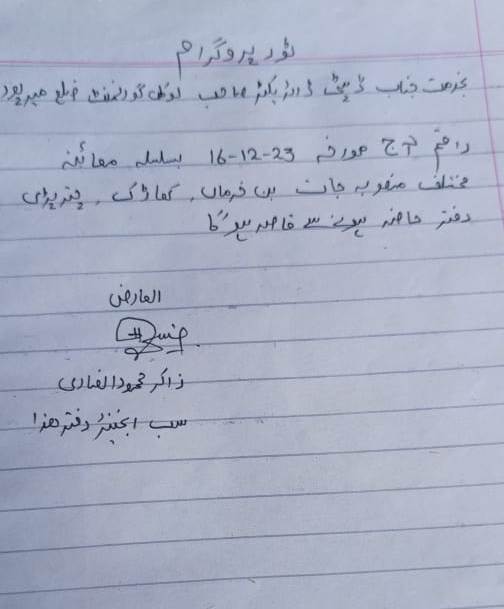 ٹور پروگرام
بخدمت جناب ڈپٹی ڈائریکٹر صاحب لوکل گورنمنٹ ضلع میرپور
راقم آج مورخہ 16-12-23 بسلسلہ معائنہ
مختلف منصوبہ جات بن خرماں، کھاڑک، چترپڑی
دفتر حاضر ہونے سے قاصر ہو گا
العارض
ذاکر محمود انصاری
سب انجینئر دفتر ھذا